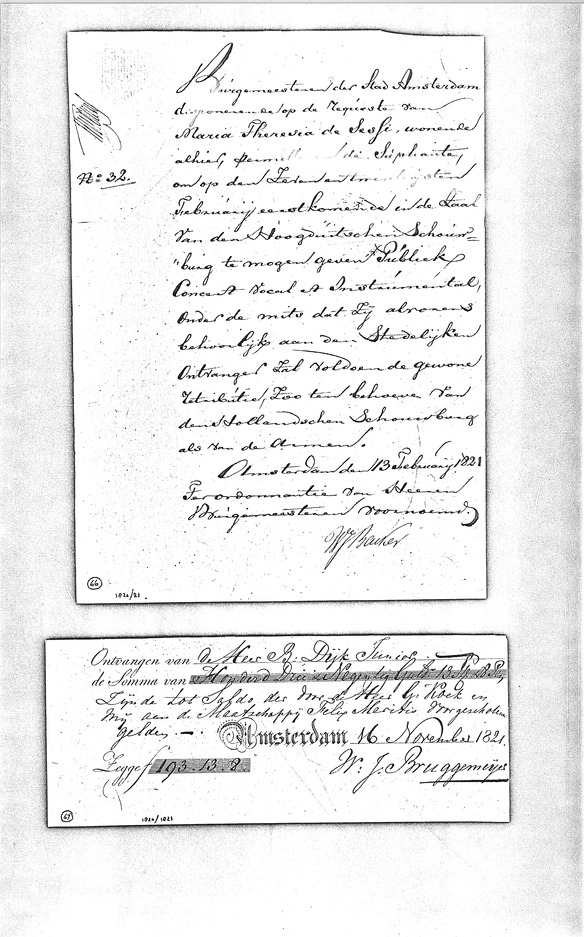 Burgemeesteren der Stad Amsterdam
disponerende op de requeste van
Maria Theresia de Sessi, wonende
alhier, de Supliante,
om op den Zevenentwintigsten
Februarij eerstkomende in de Zaal
Van den Hoogduitschen Schouw=
"burg te mogen geven Publiek
Concert Vocal et Instrumental,
Onder de mits dat Zij alvorens
behoorlijk aan den Stedelijken
Ontvanger Zal voldoen de gewone
retributie, Zoo ten behoeve Van
den Hollandschen Schouwburg
als van de Armen.
Amsterdam den 13 Februarij 1821
Ter ordonnantie van Heeren
Burgemeesteren voornoemd.
Backer
No 32.
66
1820/21
Ontvangen van de Heer B: Dijk Junior
de Somma van Honderd Drie en Negentig Guld: 13 St. 8 P.
Zijnde tot Saldo der door de Heer Kock en
mij aan de Maatschappij Felix Meritis voorgeschoten
gelden. —
Amsterdam 16 November 1821.
Zegge ƒ 193.13.8.
W. J. Bruggemeijer
67
1820/1821